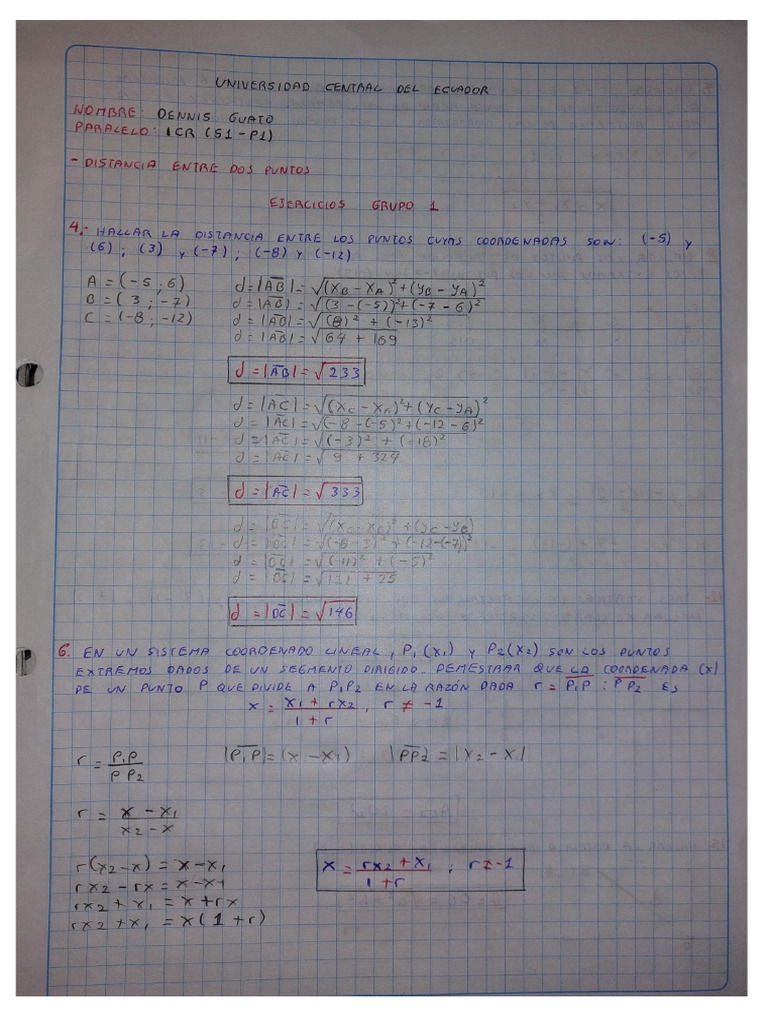 UNIVERSIDAD CENTRAL DEL ECUADOR
NOMBRE: DENNIS GUATO
PARALELO: ICR (S1-P1)
- DISTANCIA ENTRE DOS PUNTOS
EJERCICIOS GRUPO 1
4.- HALLAR LA DISTANCIA ENTRE LOS PUNTOS CUYAS COORDENADAS SON: (-5) y
(6) ; (3) y (-7) ; (-8) y (-12)
A = (-5 ; 6)
B = ( 3 ; -7)
C = (-8 ; -12)
d = |AB| = √(XB - XA)² + (YB - YA)²
d = |AB| = √(3 - (-5))² + (-7 - 6)²
d = |AB| = √(8)² + (-13)²
d = |AB| = √64 + 169
d = |AB| = √233
d = |AC| = √(XC - XA)² + (YC - YA)²
d = |AC| = √(-8 - (-5)² + (-12 - 6)²
d = |AC| = √(-3)² + (-18)²
d = |AC| = √9 + 324
d = |AC| = √333
d = |BC| = √(XC - XB)² + (YC - YB)
d = |BC| = √(-8 - 3)² + (-12-(-7))²
d = |BC| = √(-11)² + (-5)²
d = |BC| = √121 + 25
d = |BC| = √146
6. EN UN SISTEMA COORDENADO LINEAL, P1 (X1) y P2(X2) SON LOS PUNTOS
EXTREMOS DADOS DE UN SEGMENTO DIRIGIDO. DEMESTRAR QUE LA COORDENADA (X)
DE UN PUNTO P QUE DIVIDE A P1P2 EN LA RAZÓN DADA r = P1P : PP2 ES
x = x1 + rx2 / 1 + r , r ≠ -1
r = P1P / PP2
|P1P| = (x - x1)
|PP2 = |x2 - x|
r = x - x1 / x2 - x
r(x2 - x) = x - x1
rx2 - rx = x - x1
rx2 + x1 = x + rx
rx2 + x1 = x(1 + r)
x = rx2 + x1 / 1 + r ; r ≠ -1